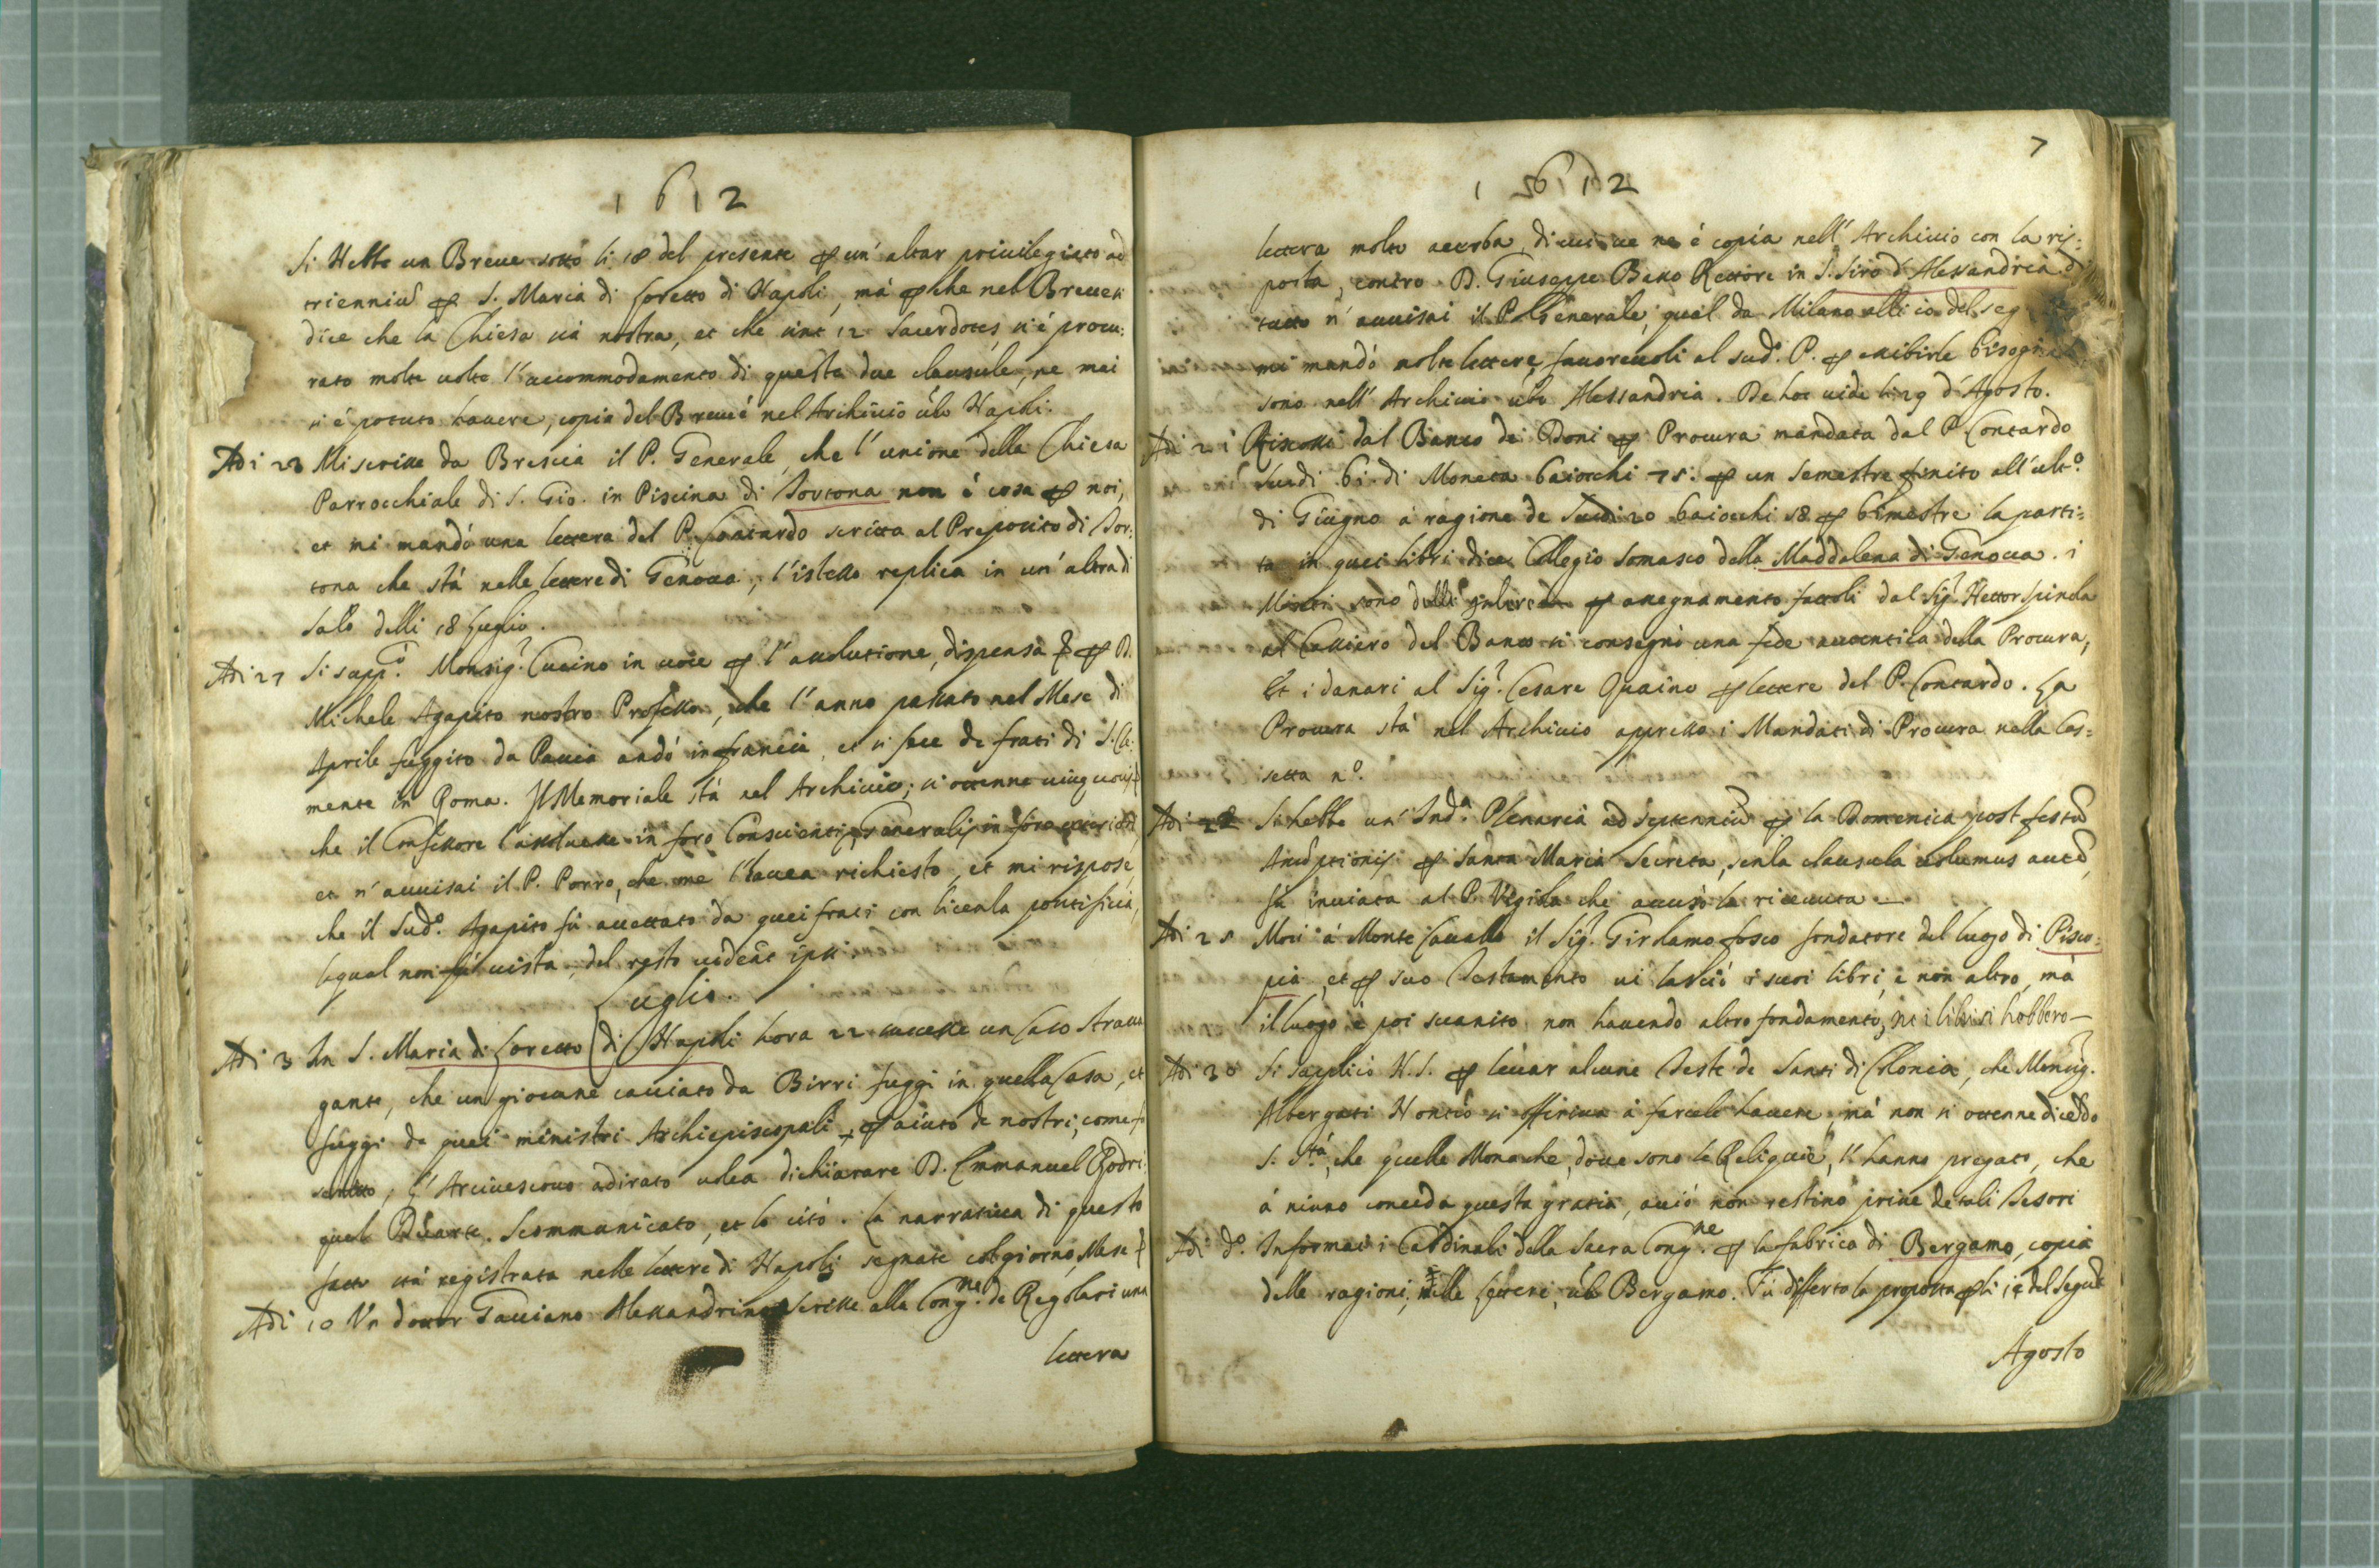 1612
Si Hebbe un Breve sotto li 18 del presente ꝑ un' altar privilegiato ad
trienniū ꝑ S. Maria di Loreto di Napoli, mà ꝑche nel Breve si
dice che la Chiesa sia nostra, et che sint 12 Sacerdotes, si è procu:
rato molte volte l'accommodamento di queste due clausule, ne mai
si è potuto havere, copia del Breve è nel Archivio ubi Napoli.
Adi 23 Mi scrisse da Brescia il P. Generale, che l'unione della Chiesa
Parrocchiale di S. Gio. in Piscina di Tortona non è cosa ꝑ noi,
et mi mandò una lettera del P. Contardo scritta al Preposito di Tor:
tona che stà nelle lettere di Genova, l'istesso replica in un' altra di
Salò delli 18 Luglio.
Adi 27 Si supp.ò Monsig.r Cucino in voce ꝑ l'assolutione, dispensa ꝑ D.
Michele Agapito nostro Professo, che l'anno passato nel Mese di
Aprile fuggito da Pavia andò in francia, et si fece de frati di S. Cle:
mente in Roma. Il Memoriale stà nel Archivio; si ottenne
che il Confessore l'assolvesse in foro Conscientiæ, Generalis in foro
et n' avvisai il P. Porro, che me l'havea richiesto, et mi rispose,
che il sud.o Agapito fù accettato da quei frati con licenza pontificia,
laqual non fù vista, del resto videāt ipsi.
Luglio.
Adi 3 In S. Maria di Loreto di Napoli hora 22 successe un Caso Strava
gante, che un giovane cacciato da Birri fuggì in quella Casa, et
fuggì da quei ministri Archiepiscopali, ꝑ aiuto de nostri, come fù
scritto, l'Arcivescovo adirato volea dichiarare D. Emmanuel Rodri:
quel Duarte. Scommunicato, et lo citò. La narrativa di questo
fatto stà registrata nelle lettere di Napoli segnate col giorno, Mese
Adi 10 Un dottor Gacciano Alessandrino scrisse alla Cong.ne de Regolari una
lettera
7
1612
lettera molto acerba, di cui ve ne è copia nell' Archivio con la ris:
posta, contro D. Giuseppe Basso Rettore in S. Siro d'Alessandria di
tutto n' avvisai il P. Generale, qual da Milano alli 10 del seg
mi mandò molte lettere favorevoli al sud.o P. ꝑ essibirle
sono nell' Archivio ubi Alessandria. De hoc vide li 29 d'Agosto.
Adi 21 Riscossi dal Banco de Doni ꝑ Procura mandata dal P. Contardo
scudi 61 di Moneta baiocchi 75: ꝑ un semestre finito all' ult.o
di Giugno à ragione de scudi 20 baiocchi 58 ꝑ bimestre la parti:
ta in quei libri dice Collegio Somasco della Maddalena di Genova. i
sono delli ꝑ assegnamento fattoli dal Sig.r Hettor Spinola
al Cassiero del Banco si consegnò una fede autentica della Procura,
Et i danari al Sig.r Cesare Quaino ꝑ lettere del P. Contardo. La
Procura stà nel Archivio appresso i Mandati di Procura nella Cas:
setta n.o
Adi 22 Si hebbe un' Ind.a Plenaria ad septenniū ꝑ la Domenica post festū
Assūptionis ꝑ Santa Maria Secreta, senza clausula volumus autē,
fù inviata al P. Vigilio che accusò la ricevuta —
Adi 25 Morì à Monte Cavallo il Sig.r Girolamo fosco fondatore del luogo di Pisco:
pia, et ꝑ suo Testamento vi lasciò i suoi libri, e non altro, mà
il luogo è poi svanito non havendo altro fondamento, ne i libri si hebbero —
Adi 30 Si Supplicò N.S. ꝑ levar alcune Teste de Santi di Colonia, che Monsig.r
Albergati Nontio si offeriva à farcele havere, mà non si ottenne dicēdo
S. S.tà, che quelle Monache, dove sono le Reliquie, l'hanno pregato, che
à niuno conceda questa gratia, acciò non restino prive de tali Tesori
Adi d.o Informai i Cardinali della Sacra Cong.ne ꝑ la fabrica di Bergamo, copia
delle ragioni, nelle scritture, ubi Bergamo. Fù differta la proposta ꝑ li 14 del segue
Agosto